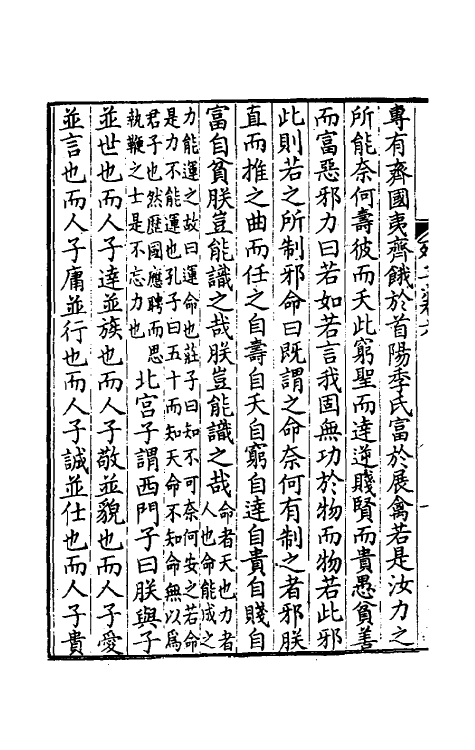 專有齊國夷齊餓於首陽季氏富於展禽若是汝力之
所能奈何壽彼而夭此窮聖而達逆賤賢而貴愚貧善
而富惡邪力曰若如若言我固無功於物而物若此邪
此則若之所制邪命曰既謂之命奈何有制之者邪朕
直而推之曲而任之自壽自夭自窮自達自貴自賤自
富自貧朕豈能識之哉朕豈能識之哉命者天也力者
人也命能成之
力能運之故曰運命也莊子曰知不可奈何安之若命
是力不能運也孔子曰五十而知天命不知命無以爲
君子也然歷國應聘而思
執鞭之士是不忘力也
北宮子謂西門子曰朕與子
並世也而人子達並族也而人子敬並貌也而人子愛
並言也而人子庸並行也而人子誠並仕也而人子貴